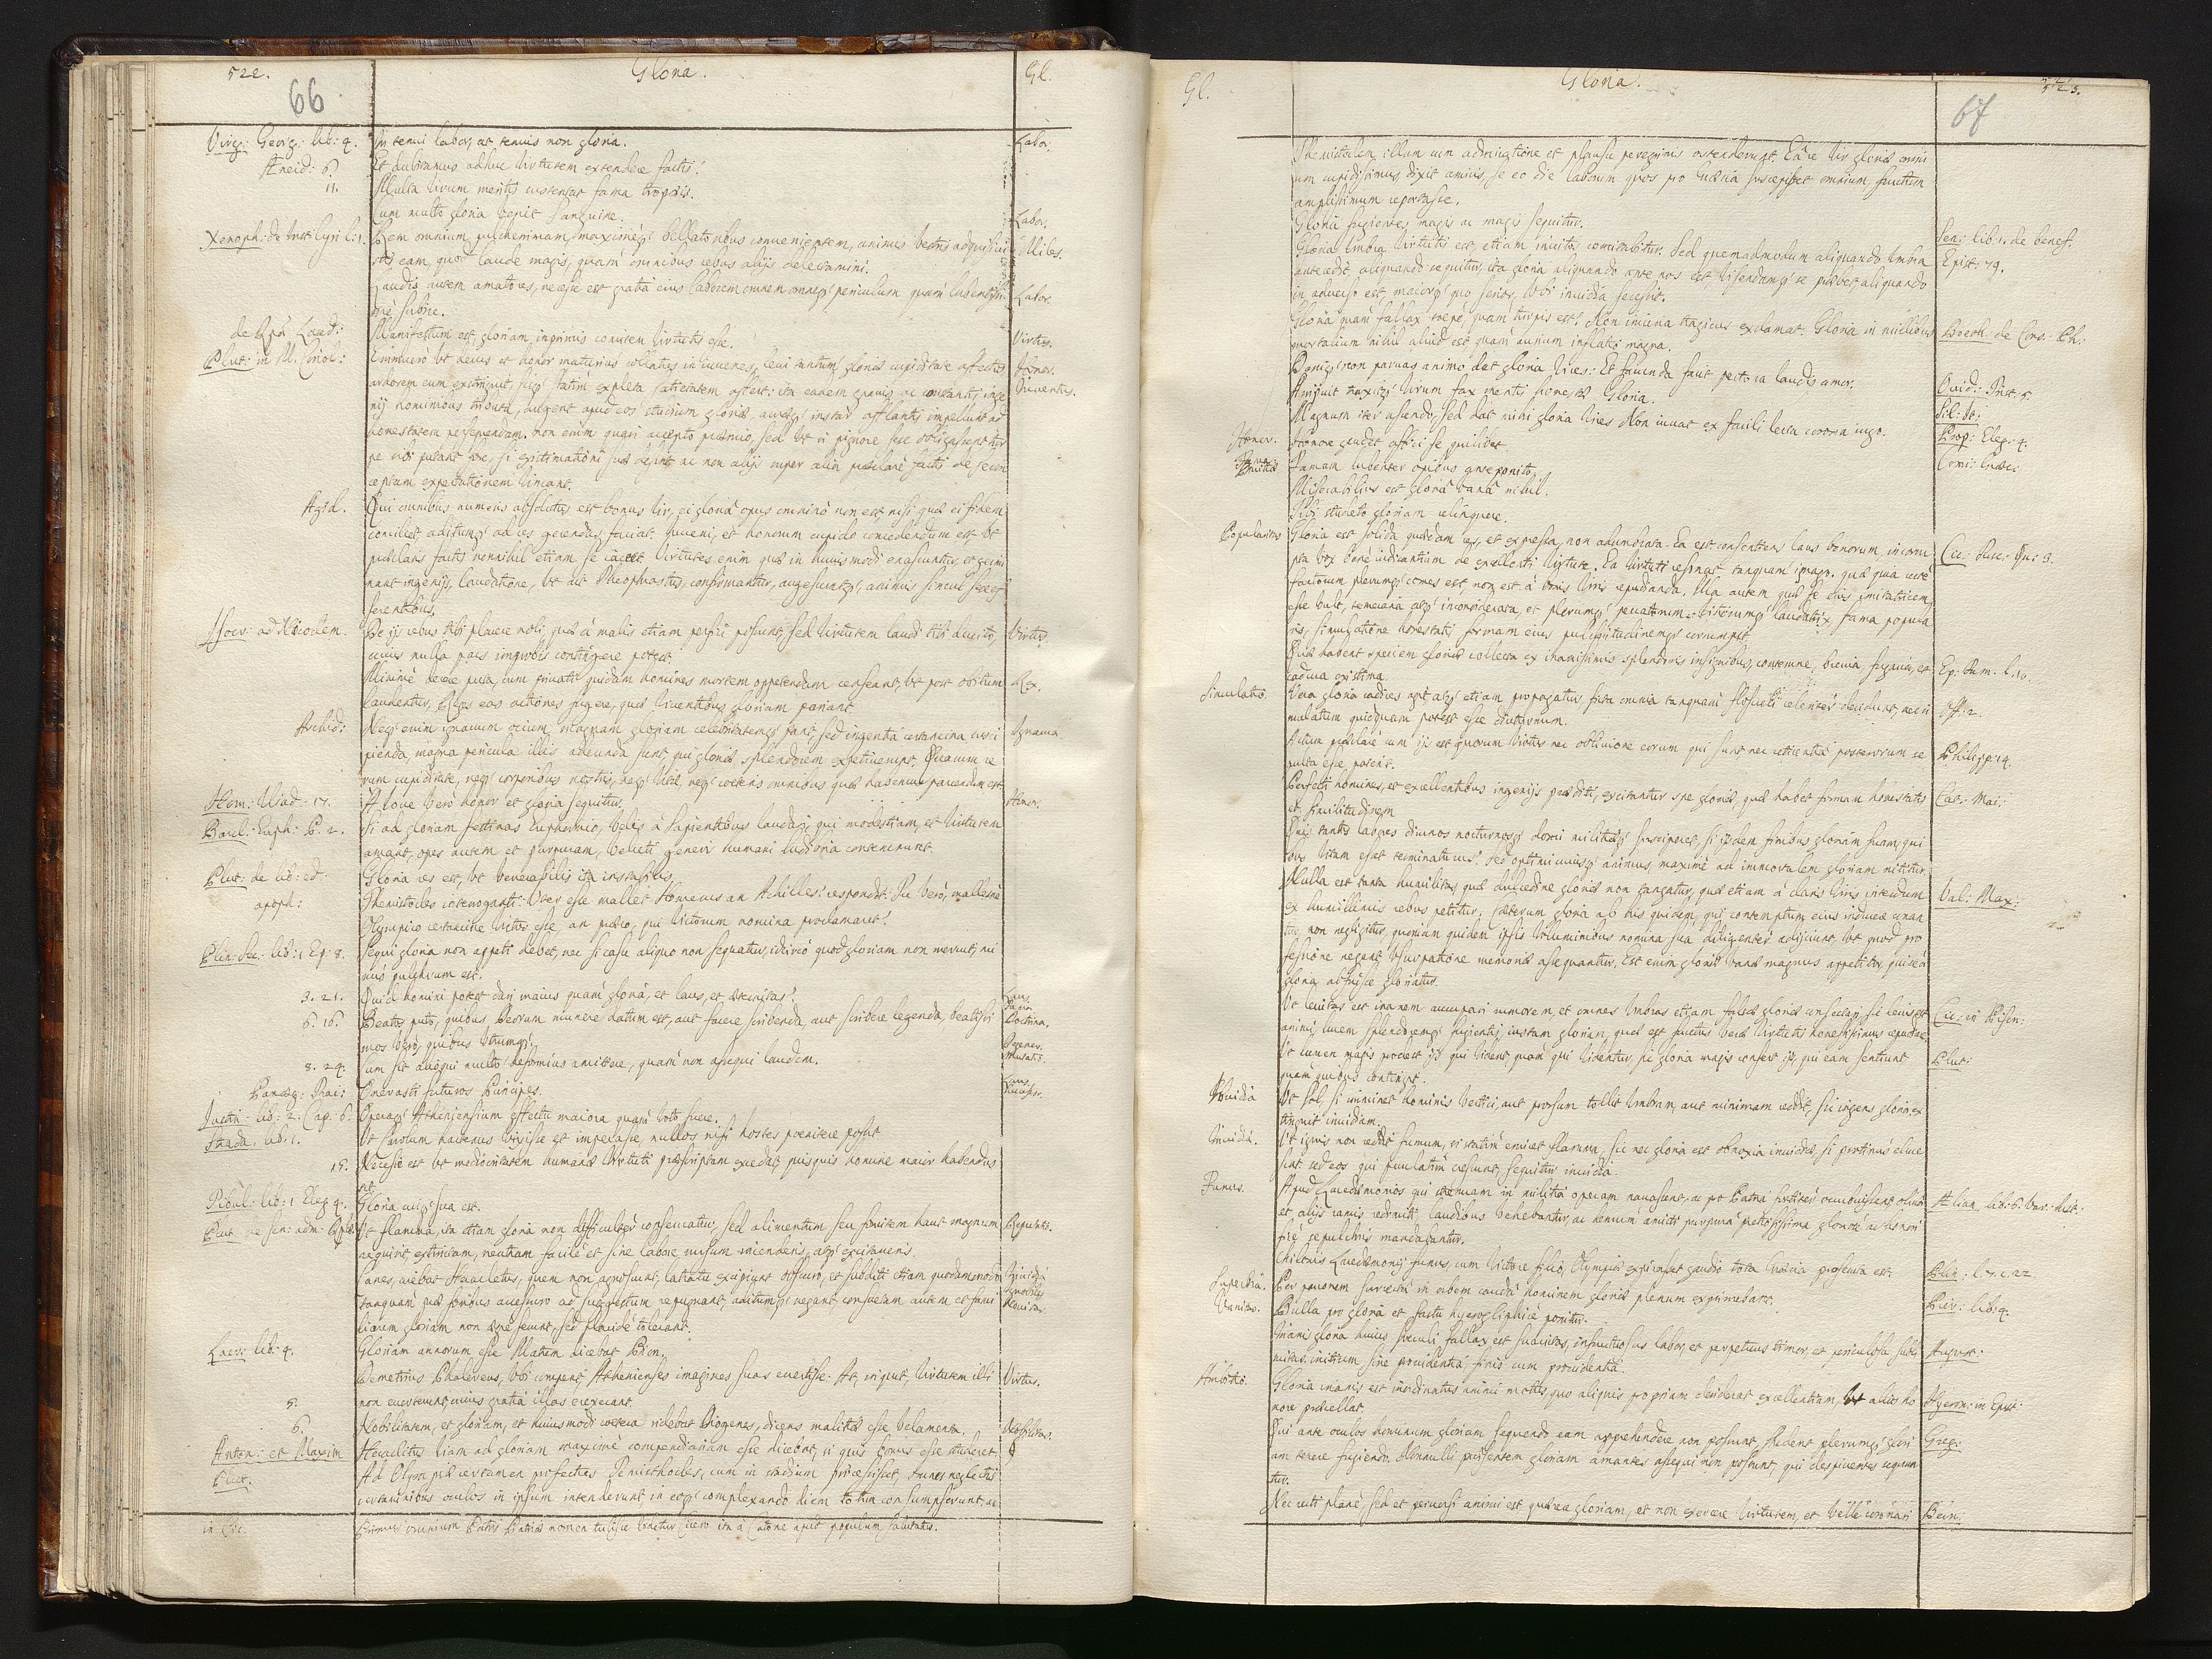 522. Gloria. Gl.
66
Virg: Georg: lib: 4. In tenui labor, at tenuis non gloria. Labor.
Aeneid: 6. Et dubitamus adhuc virtutem extendere factis!
11. Multa virum meritis sustentat fama trophaeis.
Cum multa gloria venit sanguine. Labor.
Xenoph: de Inst: Cyri l: 1. Rem omnium pulcherrimam, maximeq; bellatoribus convenientem, animis vestris Miles.
eam, quod laude magis, quam omnibus rebus alijs delectamini.
Laudis autem amatores, necesse est gratia eius laborem omnem omneq; periculum quam Labor.
subire.
Manifestum est, gloriam inprimis comitem virtutis esse. Virtus.
Plut: in decus et honor maturius collatus in iuvenes, levi tantum gloriae cupiditate affectos Honor.
ardorem eum extinguit, statim expleta satietatem affert: ita eadem gravis ac constantis inge Iuventus.
nij hominibus tributa, augent apud eos studium gloriae, instar afflantis impellunt ad
honestatem persequendam. non enim quasi accepto praemio, sed ut pignore sese obligassent
pe sibi putant fore, si existimationi suae desint ac non alijs super alia praeclare factis
expectationem vincant.
Agid. Qui omnibus numeris absolutus est bonus vir, ei gloria opus omnino non est, nisi quae ei fidem
conciliet, aditumq; ad res gerendas faciat. Iuveni, et honorum cupido concedendum est ut
praeclaris factis nonnihil etiam se iactet. Virtutes enim quae in huiusmodi enascuntur, et germi
nant ingenijs, laudatione, ut ait Theophrastus, confirmantur, augescuntq; animis simul sese
ferentibus.
Isocr: ad Nicoclem. De ijs rebus tibi placere noli, quae a malis etiam perfici possunt, sed virtutem laudi tibi ducito, Virtus.
cuius nulla pars improbis contingere potest.
Minime decere puta, cum privati quidam homines mortem oppetendam censeant, ut post obitum Rex.
laudentur, Reges eas actiones fugere, quae viventibus gloriam pariant.
Archid: Neq; enim ignavum ocium magnam gloriam celebritatemq; parit, sed ingentia certamina susci Ignavia.
pienda, magna pericula illis adeunda sunt, qui gloriae splendorem expetiverint. Quarum re
rum cupiditate, neq; corporibus nostris, neq; vitae, neq; caeteris omnibus quae habemus parcendum est.
Hom: Iliad: 17. A Iove vero honor et gloria sequitur. Honor.
Barcl: Euph: P. 2. Si ad gloriam festinas Euphormio, velis a sapientibus laudari, qui modestiam, et virtutem
amant, opes autem et purpuram, veluti generis humani ludibria contemnunt.
Plut: de lib: ed: Gloria res est, ut venerabilis ita instabilis.
apoph: Themistocles interroganti: Uter esse mallet Homerus an Achilles! respondit: Tu vero, mallesne
Olympico certamine victor esse, an praeco, qui victorum nomina proclamaret!
Plin: Sec: lib: 1 Ep: 8. Sequi gloria non appeti debet, nec si casu aliquo non sequatur, idcirco quod gloriam non meruit, mi
nus pulchrum est.
3. 21. Quid homini potest dari maius quam gloria, et laus, et aeternitas? Laus.
6. 16. Beatos puto, quibus Deorum munere datum est, aut facere scribenda, aut scribere legenda, beatissi Doctrina.
mos vero, quibus utrumq;
8. 24. Cum sit alioqui multo deformius amittere, quam non assequi laudem.
Paneg: Trai: Onerasti futuros Principes. Laus.
Iustin: lib: 2. Cap: 6. Operaq; Atheniensium effectu maiora quam voto fuere.
Strada. lib: 1. Ut Carolum hactenus vixisse et imperasse, nullos nisi hostes poenitere possit
15. Necesse est ut mediocritatem humanae virtuti praescriptam excedat, quisquis homine maior habendus
sit.
Tibul: lib: 1 Eleg 4. Gloria cuiq; sua est.
Plut: Ut flamma, ita etiam gloria non difficulter conservatur, sed alimentum seu fomitem haut magnum
requirit, extinctam, neutram facile et sine labore rursum incenderis, atq; excitaveris.
Canes, aiebat Heraclitus, quem non agnoscunt, latratu excipiunt Invidia.
tanquam prae foribus accessuro ad suggestum repugnant, aditumq; negant: consuetam autem et fami
liarem gloriam non aegre ferunt, sed placide tolerant.
Laer: lib: 4. Gloriam annorum esse Matrem dicebat Bion.
Demetrius Phalereus, ubi comperit, Athenienses imagines suas evertisse: At, inquit, virtutem illi Virtus.
non everterunt, cuius gratia illas erexerant.
5.
6. Nobilitatem, et gloriam, et huiusmodi caetera ridebat Diogenes, dicens malitiae esse velamenta. Nobilitas.
Anton: et Maxim Heraclitus viam ad gloriam maxime compendiariam esse dicebat, si quis bonus esse studeret
Plut. Ad Olympiae certamen profectus Themistocles, cum in stadium processisset, omnes neglectis
certaminibus oculos in ipsum intenderunt, in eoq; complexando diem totum consumpserunt, ac
in Cic. Primus omnium Patris Patriae nomen tulisse videtur Cicero ita a Catone apud populum salutatus.
Gl. Gloria. 523.
67
Themistoclem illum cum admiratione et plausu peregrinis ostenderunt. Ea re vir gloriae omni
um cupidissimus dixit amicis, se eo die laborum quos pro Graecia suscepisset omnium, fructum
amplissimum reportasse.
Gloria fugientes magis ac magis sequitur. Sen: lib: 1. de benef.
Gloria umbra virtutis est, etiam invitos comitabitur. Sed quemadmodum aliquando umbra Epist: 79.
antecedit, aliquando sequitur, ita gloria aliquando ante nos est, visendamq; se praebet, aliquando
in adverso est, maiorq; quo serior, ubi invidia secessit.
Gloria quam fallax saepe, quam turpis est! Non iniuria tragicus exclamat, Gloria in millibus Boeth: de Cons. Ph:
mortalium nihil aliud est quam aurium inflatio magna.
Deniq; non parvas animo dat gloria vires: Et facunda facit pectora laudis amor. Ovid: Trist: 5
Arripuit traxitq; virum fax mentis honestae Gloria. Sil: It:
Magnum iter ascendo, sed dat mihi gloria vires Non iuvat ex facili lecta corona iugo. Prop: Eleg: 4.
Honor. Honore gaudet affici se quilibet. Comi: Graec:
Fama. Famam lubenter opibus anteponito.
Miserabilius est gloria vana nihil.
Tibi studeto gloriam relinquere.
Popularitas Gloria est solida quaedam res, et expressa, non adumbrata. Ea est consentiens laus bonorum, incorru Cic: Tusc: Qu: 3.
pta vox bene iudicantium de excellenti virtute. Ea virtuti resonat tanquam imago. quae quia recte
factorum plerumq; comes est, non est a bonis viris repudianda. Illa autem quae se eius imitatricem
esse vult, temeraria atq; inconsiderata, et plerumq; peccatorum vitiorumq; laudatrix, fama popula
ris, simulatione honestatis formam eius pulchritudinemq; corrumpit.
Quae habent speciem gloriae collecta ex inanissimis splendoris insignibus, contemne, brevia, fugacia, et Ep: Fam: l. 10.
caduca existima.
Simulatio. Vera gloria radices agit, atq; etiam propagatur, ficta omnia tanquam flosculi celeriter decidunt, nec si Off: 2.
mulatum quicquam potest esse diuturnum.
Actum praeclare cum ijs est quorum virtus nec oblivione eorum qui sunt nec reticentia posterorum se Philipp: 14.
pulta esse poterit.
Perfecti homines, et excellentibus ingenijs praediti, excitantur spe gloriae, quae habet formam honestatis Cat: Mai:
et similitudinem
Quis tantos labores diurnos nocturnosq; domi militiaeq; susciperet, si ijsdem finibus gloriam suam, qui
bus vitam esset terminaturus! Sed optimi cuiusq; animus, maxime ad immortalem gloriam nititur.
Nulla est tanta humilitas, quae dulcedine gloriae non tangatur, quae etiam a claris viris interdum Val: Max:
ex humillimis rebus petitur. Caeterum gloria ab his quidem, qui contemptum eius inducere conan
tur, non negligitur, quoniam quidem ipsis voluminibus nomina sua diligenter adijciunt, ut quod pro
fessione negant, usurpatione memoriae assequantur. Est enim gloriae vanae magnus appetitor, qui se a
gloria abfuisse gloriatur.
Ut levitas est inanem aucupari rumorem, et omnes umbras etiam falsae gloriae consectari, sic levis est Cic: in Pison:
animi, lucem splendoremq; fugientis, iustam gloriam, quae est fructus verae virtutis honestissimus repudiare.
Ut lumen magis prodest ijs qui vident, quam qui videntur, sic gloria magis confert ijs, qui eam sentiunt Plut:
quam quibus contingit.
Invidia Ut Sol, si immineat hominis vertici, aut prorsum tollit umbram, aut minimam reddit, sic ingens gloria ex
tinguit invidiam.
Invidia. Ut ignis non reddit fumum, si statim emicet flamma, sic nec gloria est obnoxia invidiae, si protinus eluce
scat sed eos qui paulatim crescunt, sequitur invidia.
Funus. Apud Lacedaemonios qui strenuam in militia operam navassent, ac pro Patria fortiter occubuissent oliva Aelian. lib: 6. Var: hist:
et alijs ramis redimiti laudibus vehebantur, ac demum amicti purpura
sepulchris mandabantur.
Chilonis Lacedaemonij funus, cum victore filio, Olympiae expirasset gaudio tota Graecia prosecuta est. Plin: l. 7. c. 22
Superbia. Per pavonem surrecta in orbem cauda hominem gloriae plenum exprimebant. Pier: lib: 4.
Vanitas. Bulla pro gloria et fastu hyeroglyphice ponitur.
Inanis gloria huius saeculi fallax est suavitas, infructuosus labor, et perpetuus timor, et periculosa subli August:
mitas, initium sine providentia, finis cum
Ambitio. Gloria inanis est inordinatus animi motus, quo aliquis propriam desiderat excellentiam, ut alios ho Hyeron: in Epist:
nore praecellat.
Qui ante oculos hominum gloriam sequendo eam apprehendere non possunt, student plerumq; glori Greg:
am tenere fugiendo. Nonnulli praesentem gloriam amantes assequi non possunt, qui despicientes sequun
tur.
Nec recti plane, sed et perversi animi est quaerere gloriam, et non exercere virtutem, et velle coronari Bern: